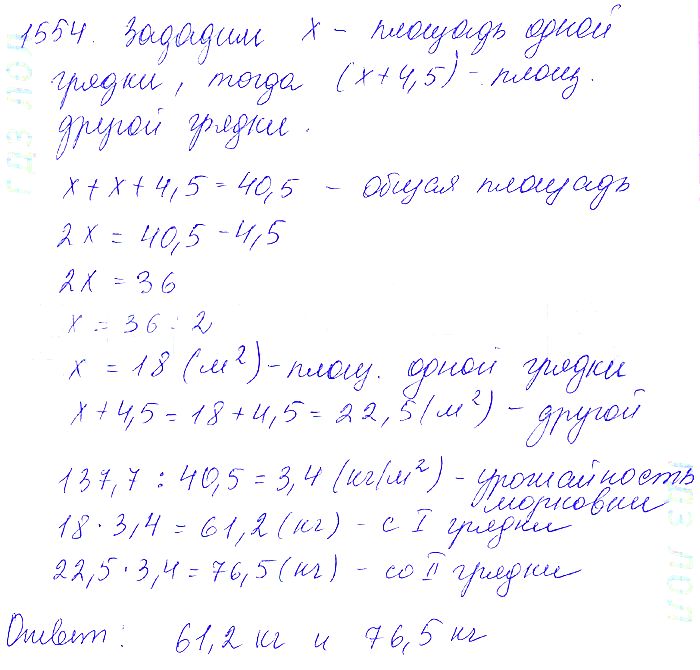 1554. Зададим x - площадь одной
грядки, тогда (x+4,5) - площ.
другой грядки.
x + x + 4,5 = 40,5 - общая площадь
2x = 40,5 - 4,5
2x = 36
x = 36 : 2
x = 18 (м²) - площ. одной грядки
x + 4,5 = 18 + 4,5 = 22,5 (м²) - другой
137,7 : 40,5 = 3,4 (кг/м²) - урожайность
моркови
18 · 3,4 = 61,2 (кг) - с I грядки
22,5 · 3,4 = 76,5 (кг) - со II грядки
Ответ: 61,2 кг и 76,5 кг